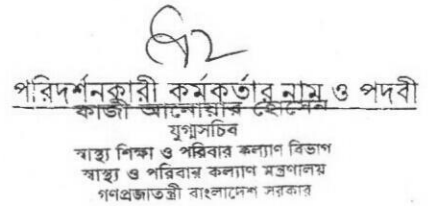 পরিদর্শনকারী কর্মকর্তার নাম ও পদবী
কাজী আনোয়ার হোসেন
যুগ্মসচিব
স্বাস্থ্য শিক্ষা ও পরিবার কল্যাণ বিভাগ
স্বাস্থ্য ও পরিবার কল্যাণ মন্ত্রণালয়
গণপ্রজাতন্ত্রী বাংলাদেশ সরকার